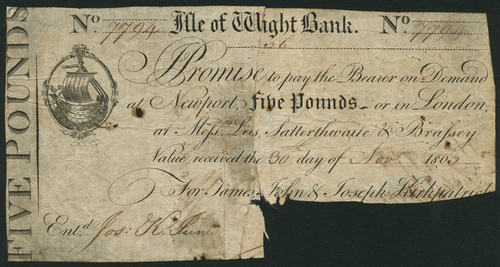 FIVE POUNDS
No. 7794 Isle of Wight Bank. No. 7794
Promise to pay the Bearer on Demand
at Newport, Five Pounds or in London,
at Messrs. Lees, Satterthwaite & Brassey
Value received the 30th day of Nov 180
For James, John & Joseph Kirkpatrick
Entd. Jos: K. Junr